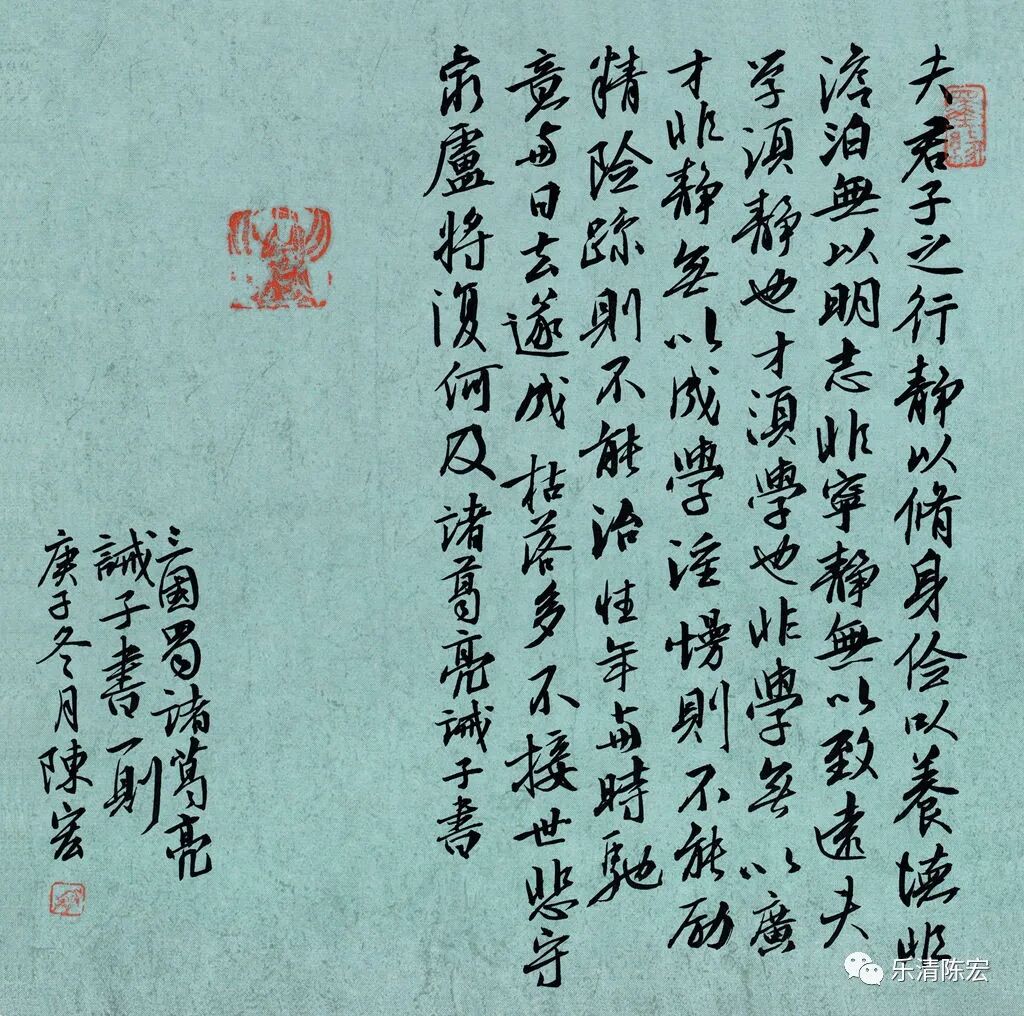 夫君子之行静以脩身俭以養德非
澹泊無以明志非寧静無以致遠夫
学須静也才須學也非學無以廣
才非静無以成學淫慢則不能励
精险躁則不能治性年与時馳
意与日去遂成枯落多不接世悲守
窮廬将復何及諸葛亮誡子書
三國蜀諸葛亮
誡子書一則
庚子冬月陳宏
乐清陈宏